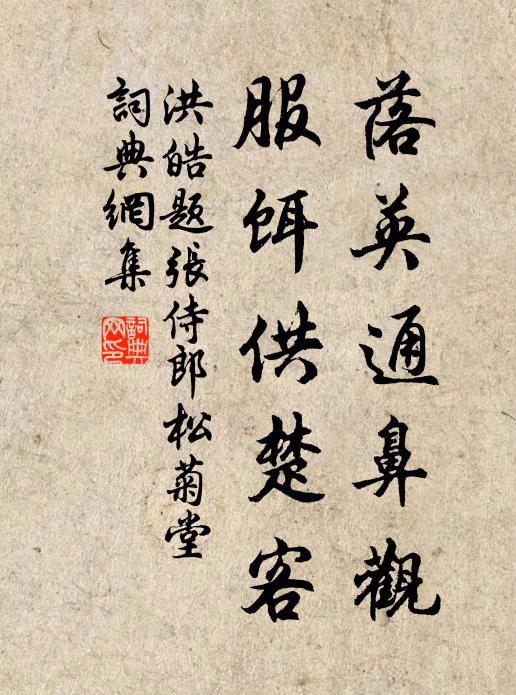 落英通鼻觀
服餌供楚客
洪皓題張侍郎松菊堂
詞典網集
詞典
网印